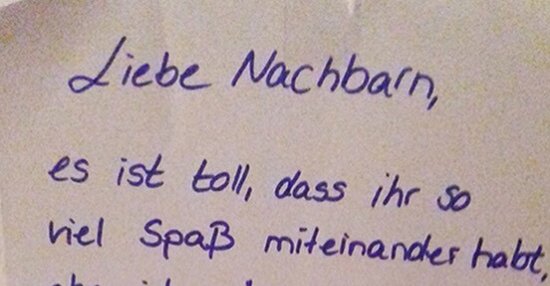 Liebe Nachbarn,
es ist toll, dass ihr so
viel Spaß miteinander habt,